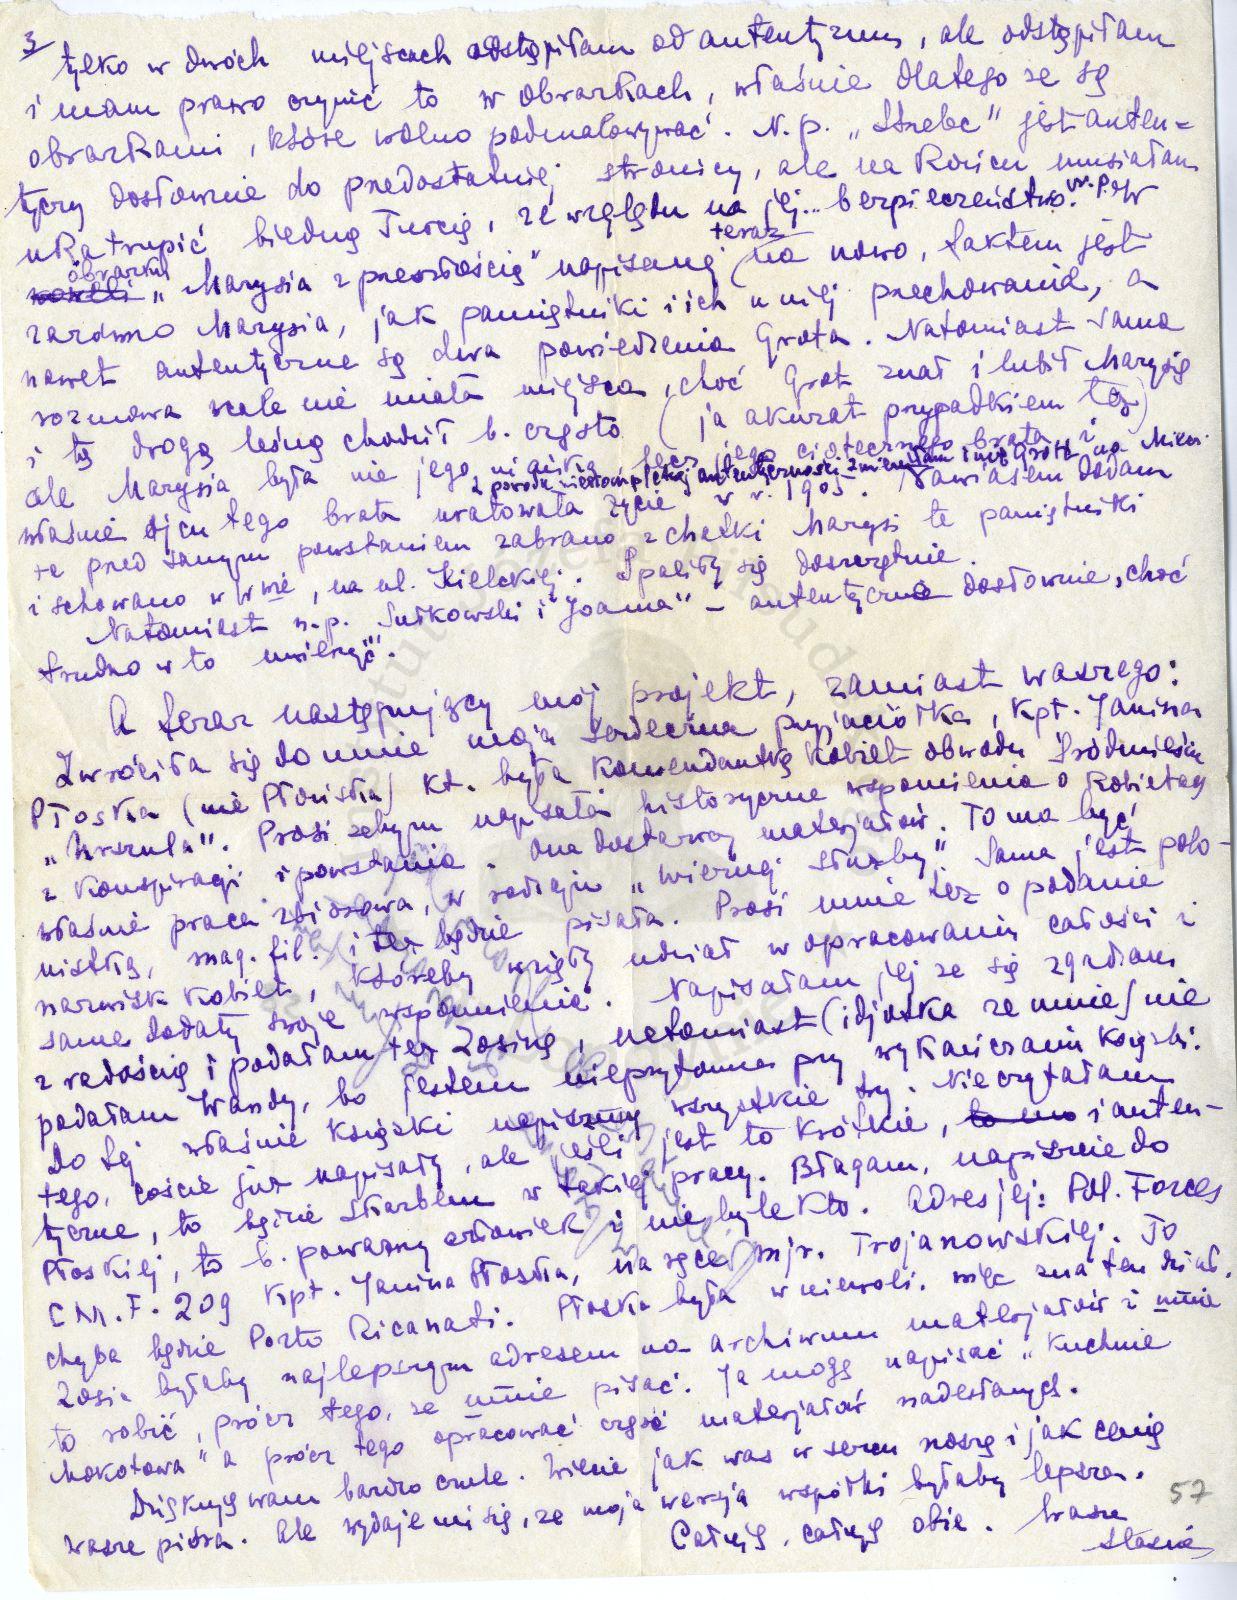 3
tylko w dwóch miejscach odstąpiłam od autentyzmu, ale odstąpiłam
i mam prawo czynić to w obrazkach, właśnie dlatego że są
obrazkami, które wolno podmalowywać. N.p. „Szebc” jest auten=
tyczny dosłownie do przedostatniej stronicy, ale na końcu musiałam
ukatrupić biedną Turcię, ze względu na jej... bezpieczeństwo. W
obrazku „Marysia z przeszłością” napisanej teraz na nowo, faktem jest
zarówno Marysia, jak pamiętniki i ich u niej przechowanie, a
nawet autentyczne są dwa powiedzenia Grota. Natomiast sama
rozmowa wcale nie miała miejsca, choć Grot znał i lubił Marysię
i tą drogą leśną chodził b. często (ja akurat przypadkiem też)
ale Marysia była nie jego niańką lecz jego ciotecznego brata i
z powodu niekompletnej autentyczności zmieniłam imię Grota na
właśnie ojcu tego brata uratowała życie w r. 1905. Nawiasem dodam
że przed samym powstaniem zabrano z chatki Marysi te pamiętniki
i schowano w W-wie, na ul. Kieleckiej. Spaliły się doszczętnie.
Natomiast n.p. Sułkowski i „Joanna” – autentyczne dosłownie, choć
trudno w to uwierzyć”.
A teraz następujący mój projekt, zamiast waszego:
Zwróciła się do mnie moja serdeczna przyjaciółka, kpt. Janina
Płoska (nie Płońska) kt. była Komendantką Kobiet obwodu Śródmieście
„Urszula”. Prosi żebym napisała historyczne wspomnienia o kobietach
z konspiracji i powstania. Ona dostarczy materjałów. To ma być
właśnie praca zbiorowa, w rodzaju „Wiernej służby”. Sama jest polo-
nistką, mag. fil. i też będzie pisała. Prosi mnie też o podanie
nazwisk kobiet, któreby wzięły udział w opracowaniu całości i
same dodały swoje wspomnienie. Napisałam jej że się zgadzam
z radością i podałam też Zosinę, natomiast (idjotka ze mnie) nie
podałam Wandy, bo jestem nieprzytomna przy wykańczaniu książki.
Do tej właśnie książki napiszemy wszystkie trzy. Nie czytałam
tego, coście już napisały, ale jeśli jest to krótkie, i auten-
tyczne, to będzie skarbem w takiej pracy. Błagam, napiszcie do
Płoskiej, to b. poważny człowiek i nie byle kto. Adres jej: Pol. Forces
C.M.F. 209 Kpt. Janina Płoska, na ręce mjr. Trojanowskiej. To
chyba będzie Porto Ricanati. Płoska była w niewoli. więc zna ten dział.
Zosia byłaby najlepszym adresem na archiwum materjałów i umie
to robić, prócz tego, że umie pisać. Ja mogę napisać „Kuchnie
Mokotowa” a prócz tego opracować część materjałów nadesłanych.
Dziękuję wam bardzo czule. Wiecie jak was w sercu noszę i jak cenię
wasze pióra. Ale wydaje mi się, że moja wersja współki byłaby lepsza.
Całuję, całuję obie. Wasza
Stasia
57